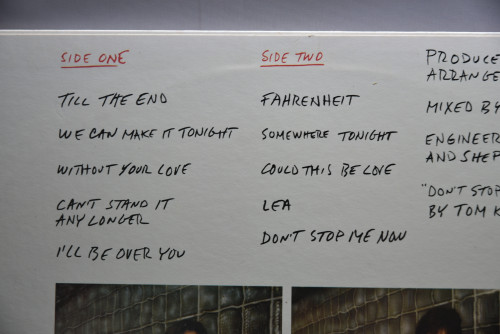 SIDE ONE
TILL THE END
WE CAN MAKE IT TONIGHT
WITHOUT YOUR LOVE
CAN'T STAND IT
ANY LONGER
I'LL BE OVER YOU
SIDE TWO
FAHRENHEIT
SOMEWHERE TONIGHT
COULD THIS BE LOVE
LEA
DON'T STOP ME NOW
PRODUCE
ARRANGE
MIXED BY
ENGINEER
AND SHEP
"DON'T STOP
BY TOM K